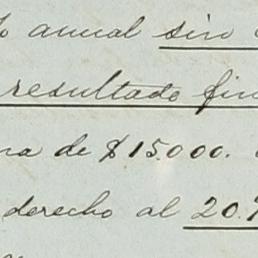 anual sin
resultado fin
na de $15.000.
derecho al 20%